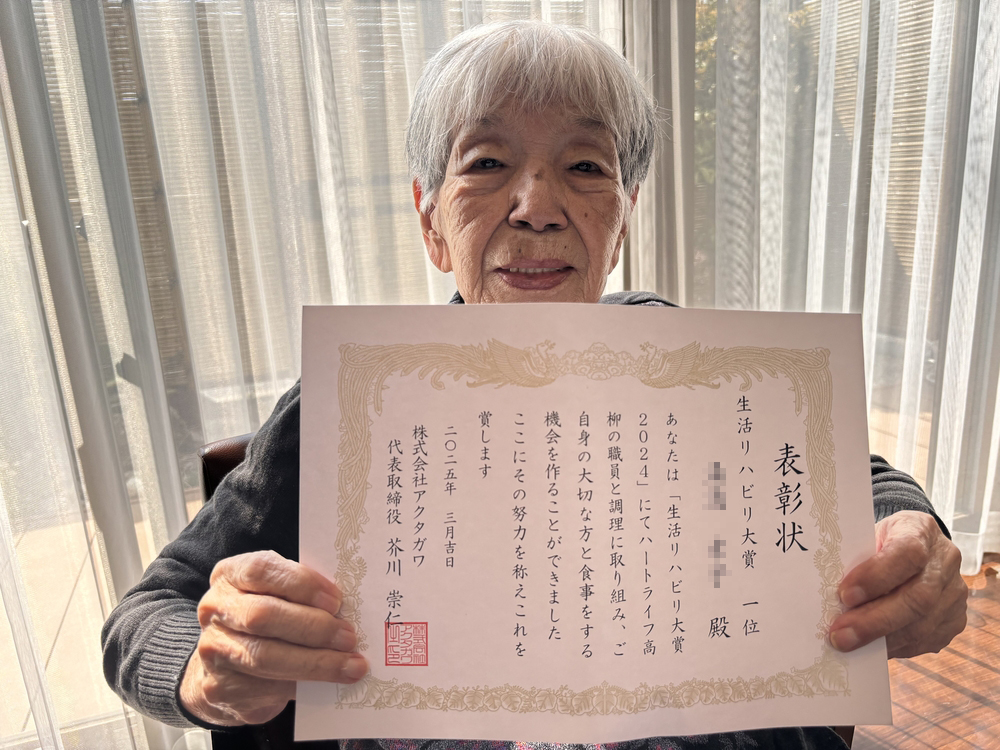 表彰状
生活リハビリ大賞 一位
殿
あなたは「生活リハビリ大賞
2024」にてハートライフ高
柳の職員と調理に取り組み、ご
自身の大切な方と食事をする
機会を作ることができました
ここにその努力を称えこれを
賞します
二〇二五年 三月吉日
株式会社アクタガワ
代表取締役 芥川 崇仁